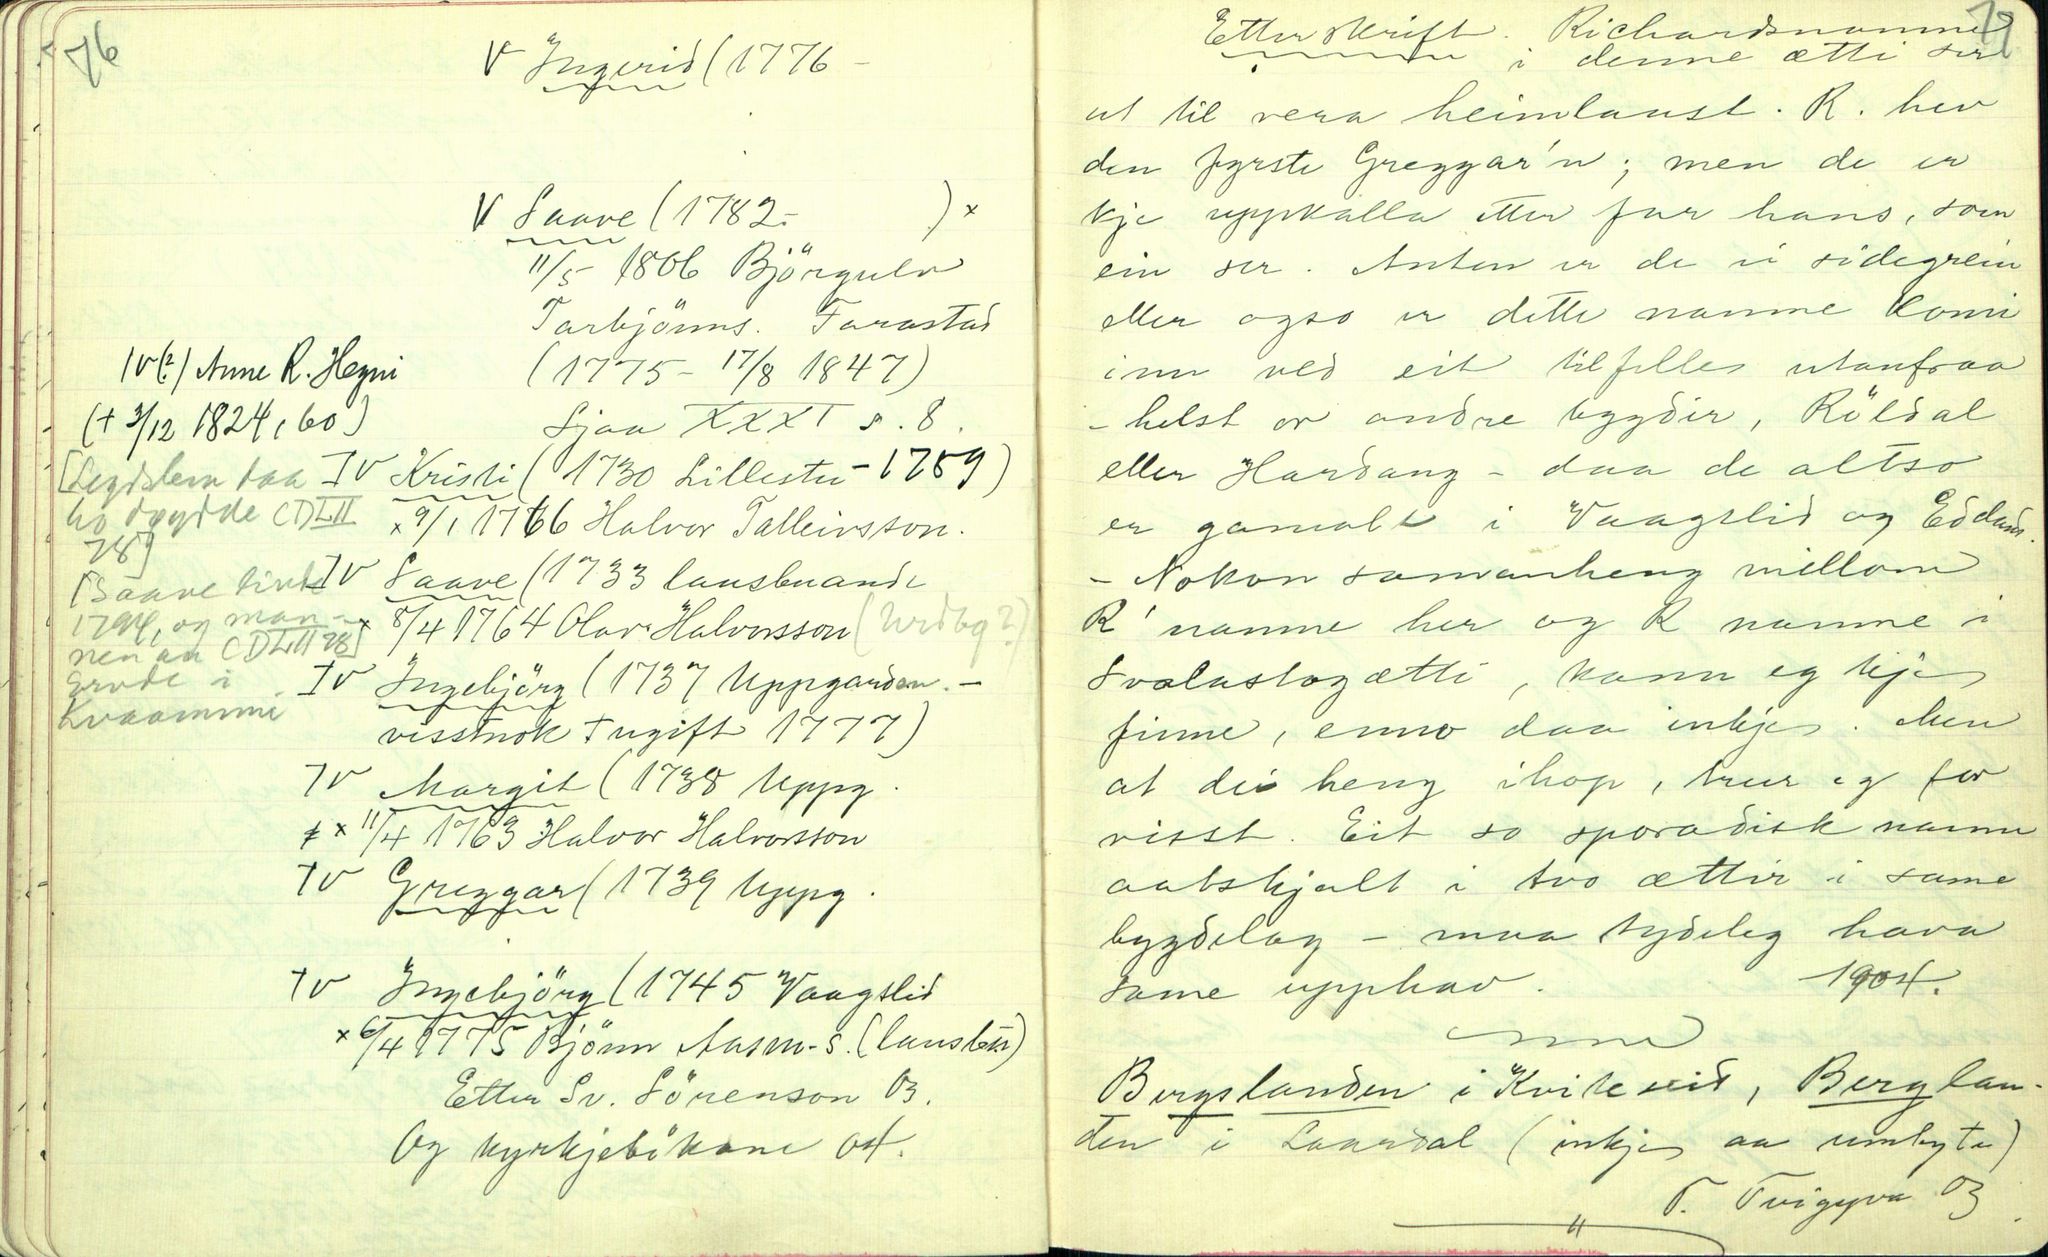 76
V Ingerid (1776 –
V Saave (1782 – ) x
11/5 1806 Björgulv
Tarbjönns. Farastad
(1775 – 17/8 1847)
Sjaa XXXI s. 8.
IV(?) Anne R. Hegni
(+ 3/12 1824, 60)
IV Kristi (1730 Lillestu – 1789)
x 9/1 1766 Halvor Talleivsson.
[Legdslem daa
ho döydde CDLII
78]
IV Saave (1733 lausbuande
x 8/4 1764 Olav Halvorsson (Urdbg?)
[Saave livde
1794, og man-
nen aa CDLII 78]
Grvde i
Kvaammi
IV Ingebjörg (1737 Uppgarden. –
visstnok + ugift 1777)
IV Margit (1738 Uppg.
x 11/4 1763 Halvor Halvorsson
IV Greggar (1739 Uppg.
IV Ingebjörg (1745 Vaagslid
x 6/4 1775 Björn Aasm-s. (lausbu)
Etter Sv. Sörenson 03.
Og kyrkjebökane 04.
77
Etterskrift. Richardsnamne
i denne ætti ser
ut til vera heimlaust. R. hev
den fyrste Greggar'n; men de er
kje uppkalla etter far hans, som
ein ser. Anten er de ei sidegrein
eller ogso er dette namne komi
inn ved eit tilfelle utanfraa
– helst or andre bygdir, Röldal
eller Hardang – daa de altso
er gamalt i Vaagslid og Eddand.
– Nokon samanheng millom
R' namne her og R namne i
Svalastogætti, kann eg kje
finne, enno daa inkje. Men
at dei heng ihop, trur eg for
visst. Eit so sporadisk namn
aatskjalt i tvo ættir i same
bygdelag – maa tydeleg hava
same upphav. 1904.
Bergslanden i Kviteseid, Berglan-
den i Laardal (inkje aa umbyte)
T. Tvigyva 03